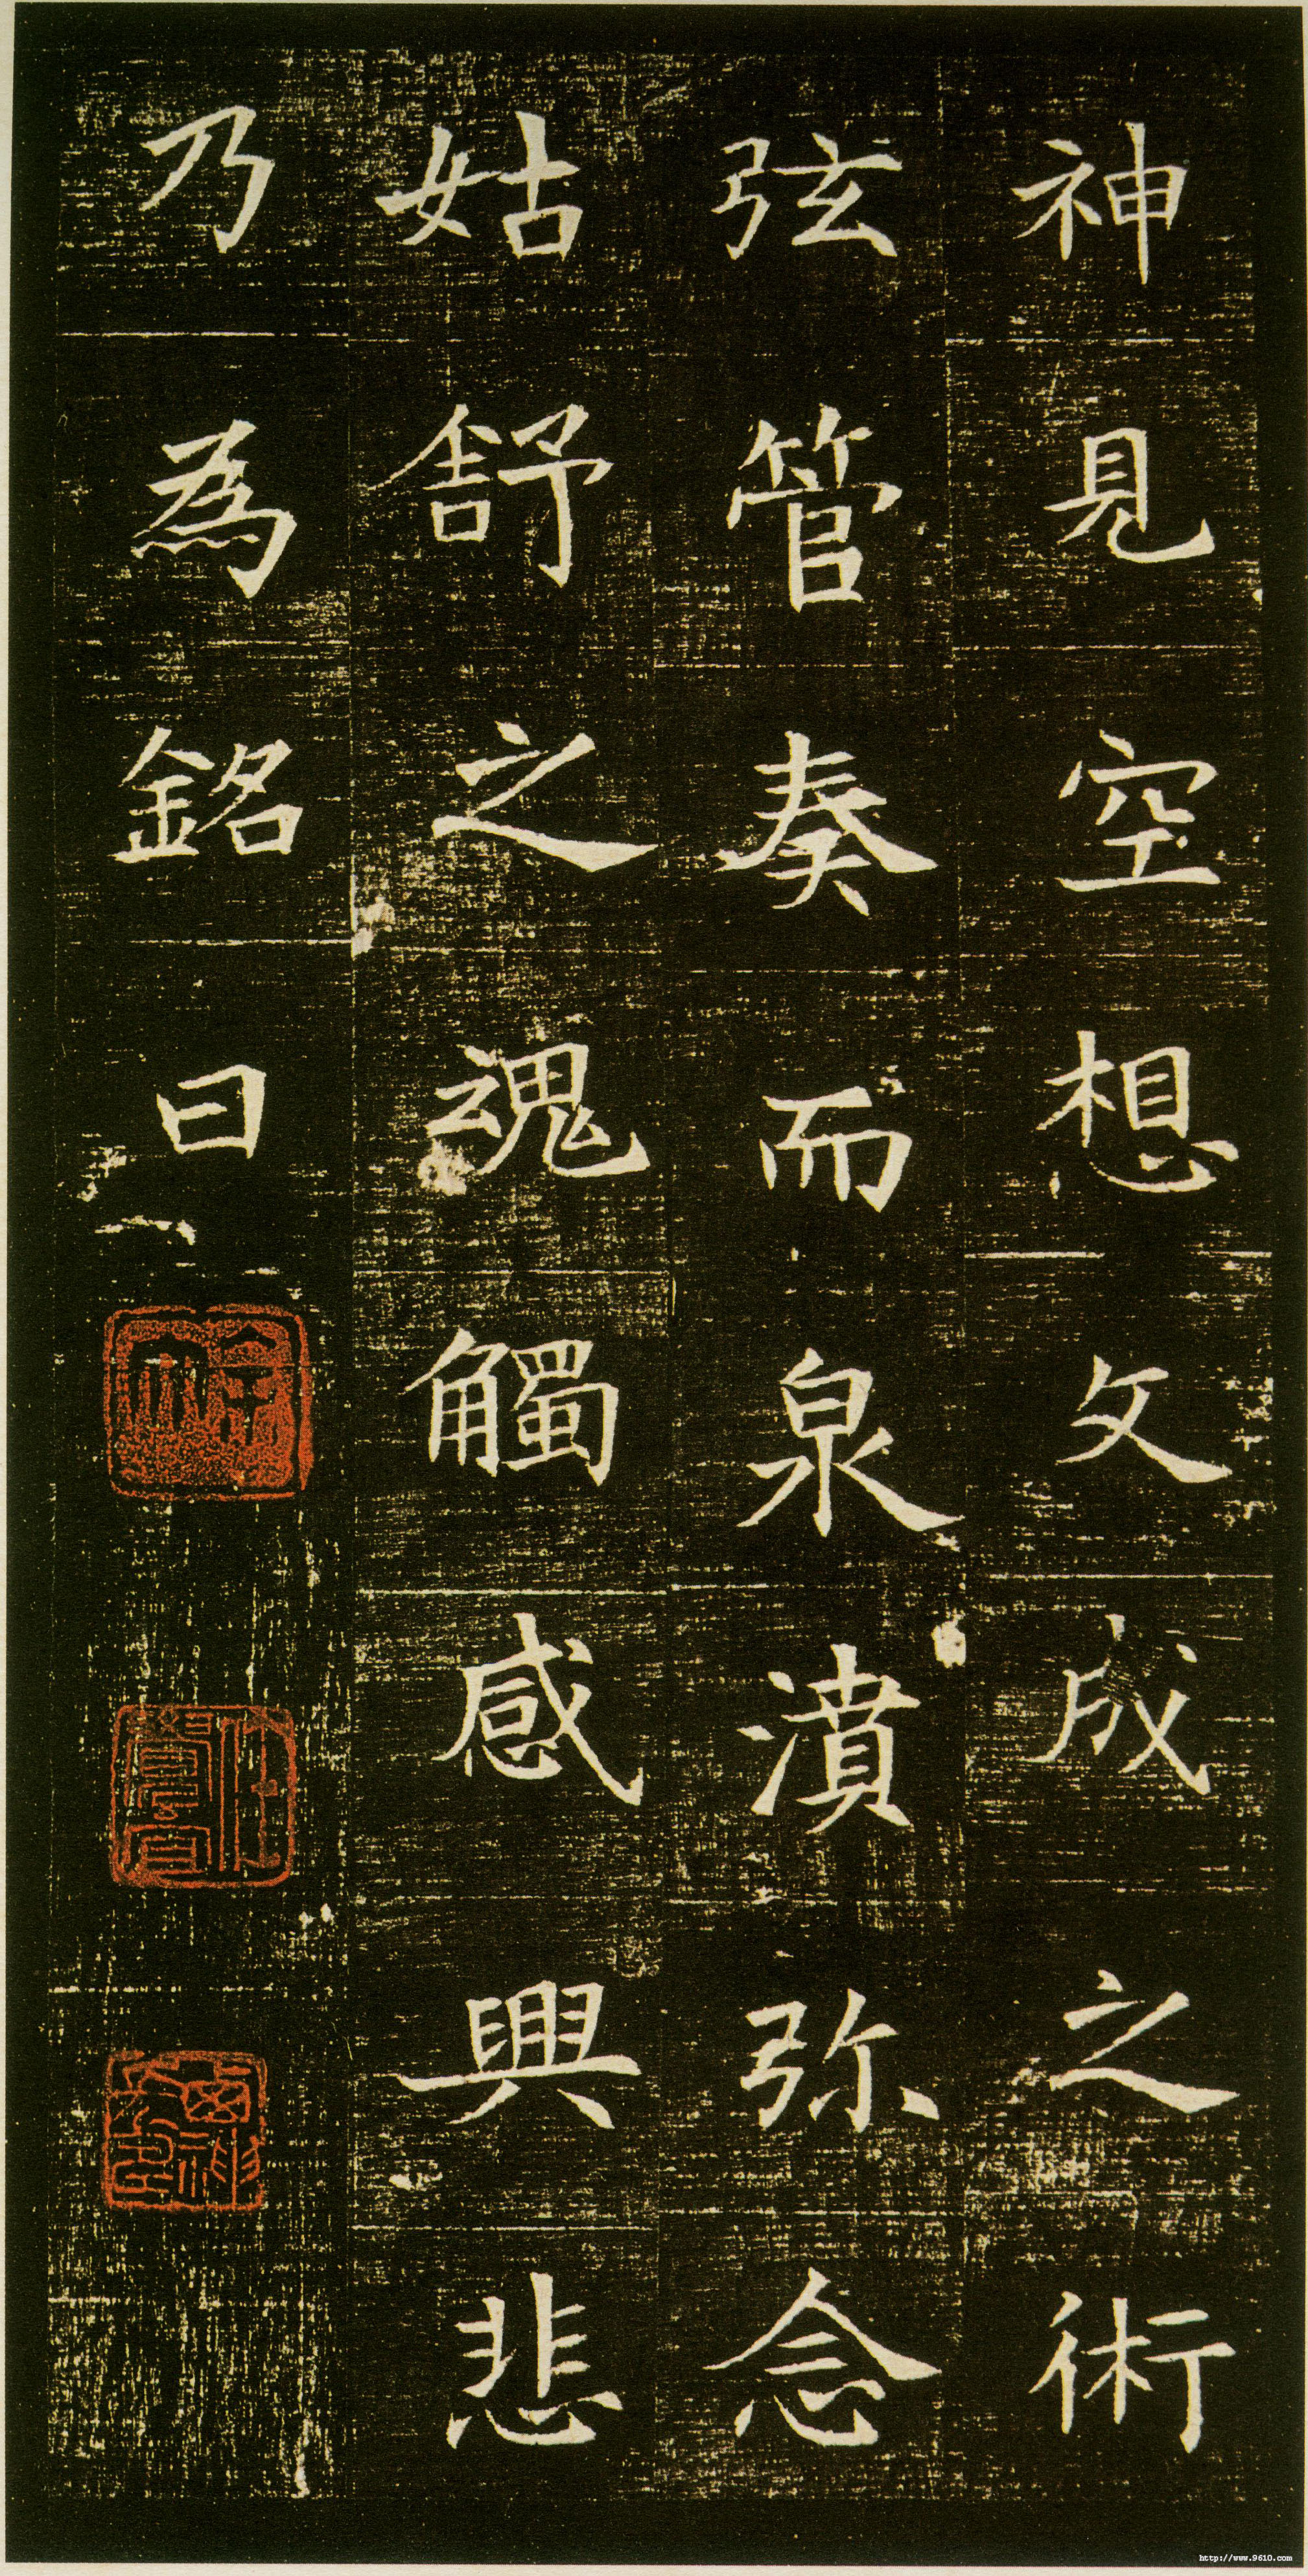 神見空想文成之術
弦管奏而泉濆弥念
姑舒之魂觸感興悲
乃為銘曰
http://www.9610.com